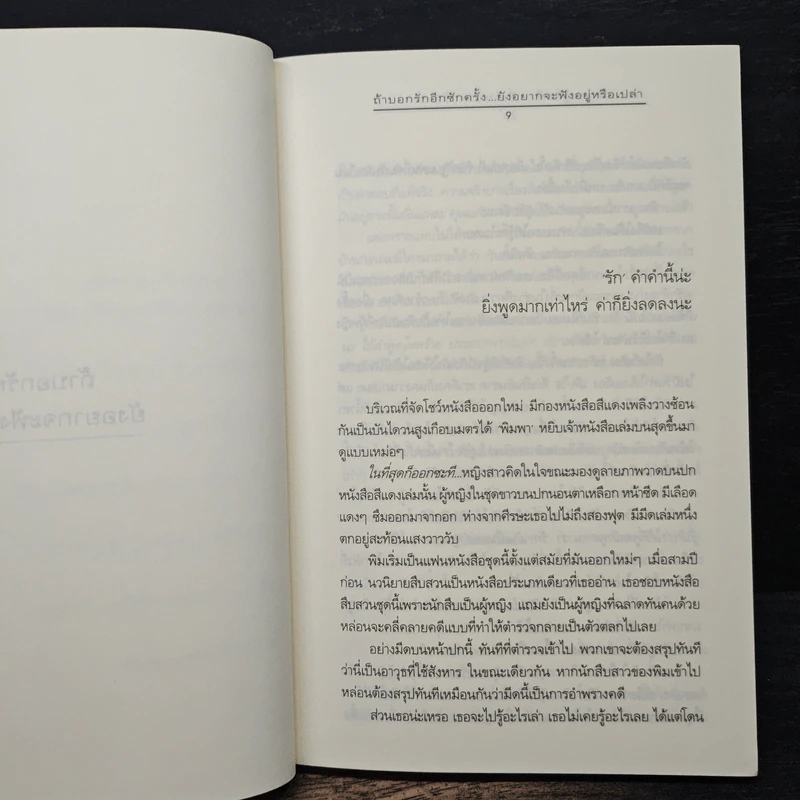 ถ้าบอกรักอีกซักครั้ง...ยังอยากจะฟังอยู่หรือเปล่า
9
'รัก' คำคำนี้น่ะ
ยิ่งพูดมากเท่าไหร่ ค่าก็ยิ่งลดลงนะ
บริเวณที่จัดโชว์หนังสือออกใหม่ มีกองหนังสือสีแดงเพลิงวางซ้อน
กันเป็นบันไดวนสูงเกือบเมตรได้ 'พิมพา' หยิบเจ้าหนังสือเล่มบนสุดขึ้นมา
ดูแบบเหม่อๆ
ในที่สุดก็ออกซะที...หญิงสาวคิดในใจขณะมองดูลายภาพวาดบนปก
หนังสือสีแดงเล่มนั้น ผู้หญิงในชุดขาวบนปกนอนตาเหลือก หน้าซีด มีเลือด
แดงๆ ซึมออกมาจากอก ห่างจากศีรษะเธอไปไม่ถึงสองฟุต มีมีดเล่มหนึ่ง
ตกอยู่สะท้อนแสงวาววับ
พิมเริ่มเป็นแฟนหนังสือชุดนี้ตั้งแต่สมัยที่มันออกใหม่ๆ เมื่อสามปี
ก่อน นวนิยายสืบสวนเป็นหนังสือประเภทเดียวที่เธออ่าน เธอชอบหนังสือ
สืบสวนชุดนี้เพราะนักสืบเป็นผู้หญิง แถมยังเป็นผู้หญิงที่ฉลาดทันคนด้วย
หล่อนจะคลี่คลายคดีแบบที่ทำให้ตำรวจกลายเป็นตัวตลกไปเลย
อย่างมีดบนหน้าปกนี้ ทันทีที่ตำรวจเข้าไป พวกเขาจะต้องสรุปทันที
ว่านี่เป็นอาวุธที่ใช้สังหาร ในขณะเดียวกัน หากนักสืบสาวของพิมเข้าไป
หล่อนต้องสรุปทันทีเหมือนกันว่ามีดนี้เป็นการอำพรางคดี
ส่วนเธอน่ะเหรอ เธอจะไปรู้อะไรเล่า เธอไม่เคยรู้อะไรเลย ได้แต่โดน